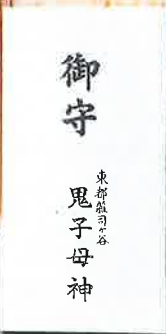 御守
東都雑司ヶ谷
鬼子母神